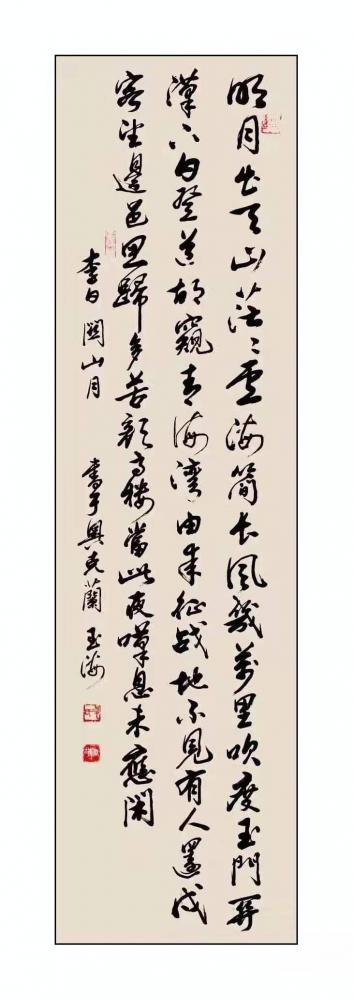 明月出天山茫〻雲海簡長風幾萬里吹度玉門關
漢下白登道胡窺青海灣由來征戰地不見有人還戍
客望邊邑思歸多苦顏高樓當此夜嘆息未應閑
李白關山月 書于奧克蘭 玉海